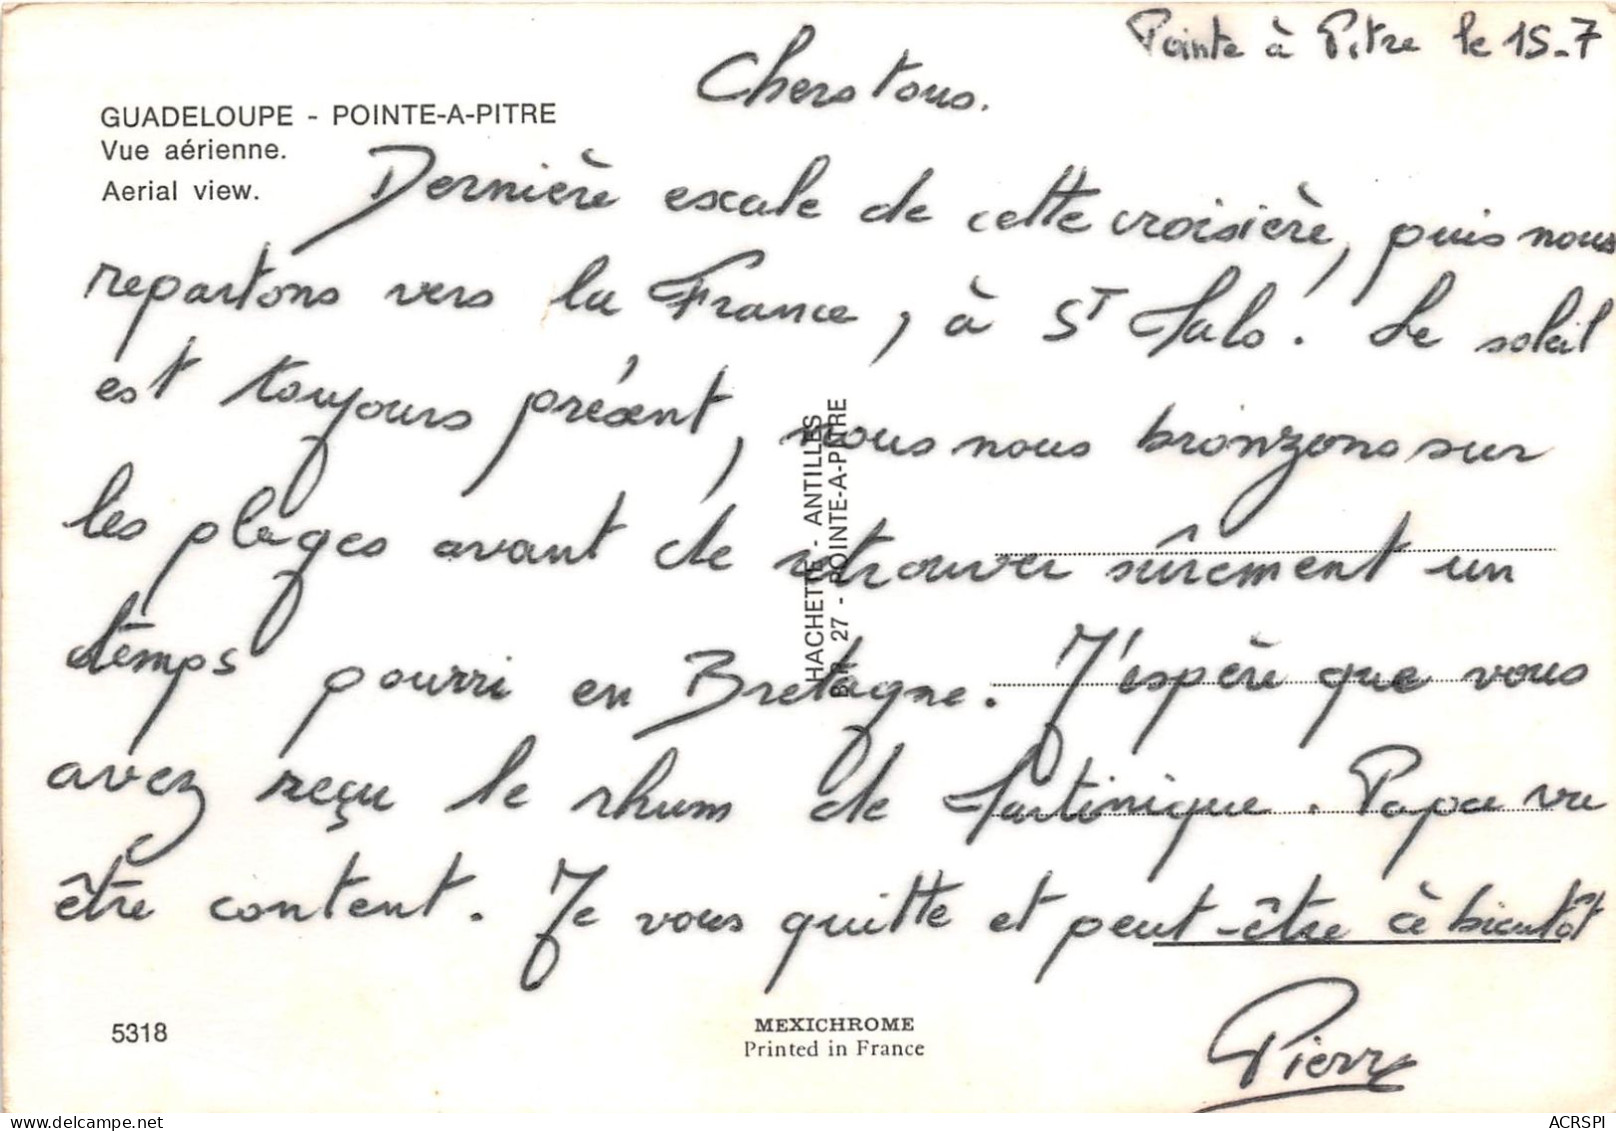 Pointe à Pitre le 15-7
Chers tous.
GUADELOUPE - POINTE-A-PITRE
Vue aérienne.
Aerial view.
Dernière escale de cette croisière, puis nous
repartons vers la France, à St Malo. Le soleil
est toujours présent, nous nous bronzons sur
les plages avant de retrouver sûrement un
temps pourri en Bretagne. J'espère que vous
avez reçu le rhum de Martinique. Papa va
être content. Je vous quitte et peut-être à bientôt
Pierre
HACHETTE - ANTILLES
BP 27 - POINTE-A-PITRE
5318
MEXICHROME
Printed in France
delcampe.net
ACRSPI